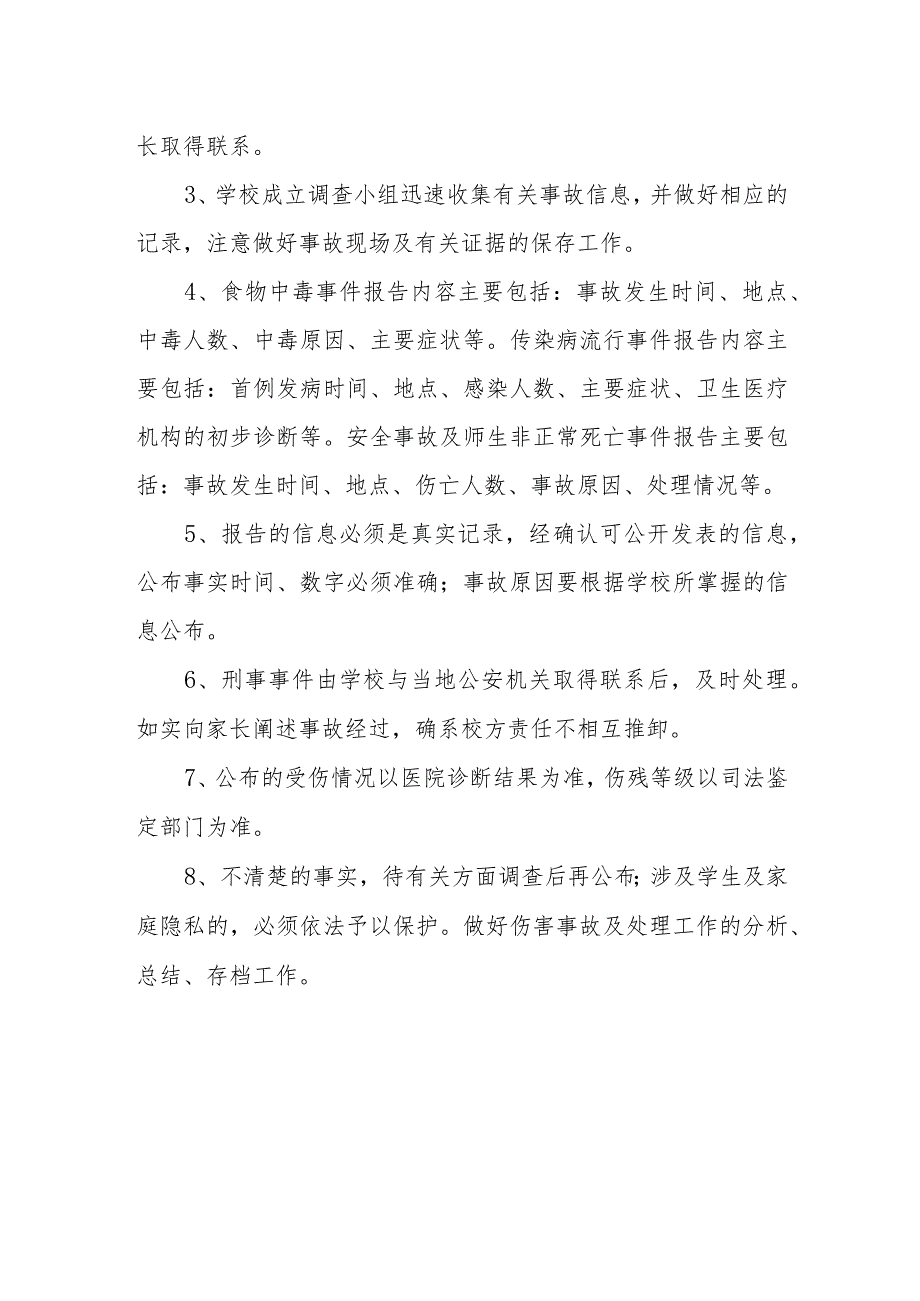 长取得联系。
3、学校成立调查小组迅速收集有关事故信息，并做好相应的
记录，注意做好事故现场及有关证据的保存工作。
4、食物中毒事件报告内容主要包括：事故发生时间、地点、
中毒人数、中毒原因、主要症状等。传染病流行事件报告内容主
要包括：首例发病时间、地点、感染人数、主要症状、卫生医疗
机构的初步诊断等。安全事故及师生非正常死亡事件报告主要包
括：事故发生时间、地点、伤亡人数、事故原因、处理情况等。
5、报告的信息必须是真实记录，经确认可公开发表的信息，
公布事实时间、数字必须准确；事故原因要根据学校所掌握的信
息公布。
6、刑事事件由学校与当地公安机关取得联系后，及时处理。
如实向家长阐述事故经过，确系校方责任不相互推卸。
7、公布的受伤情况以医院诊断结果为准，伤残等级以司法鉴
定部门为准。
8、不清楚的事实，待有关方面调查后再公布；涉及学生及家
庭隐私的，必须依法予以保护。做好伤害事故及处理工作的分析、
总结、存档工作。